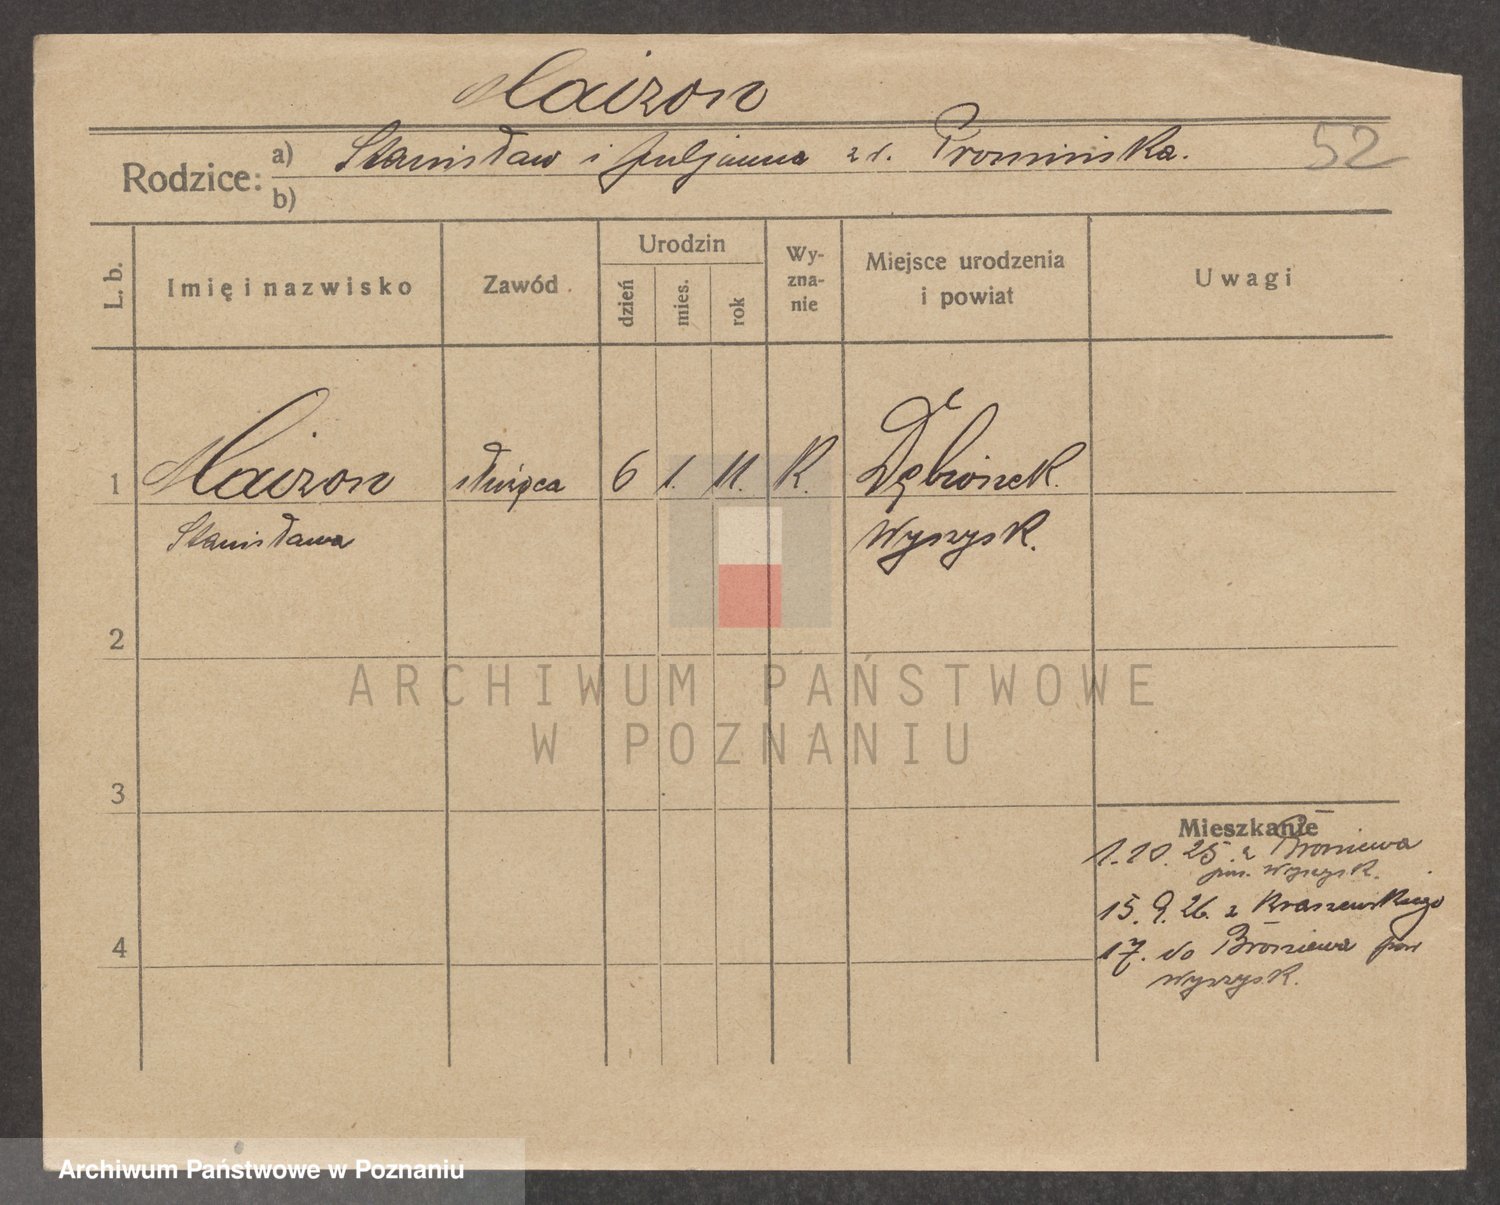 Maizon
Rodzice:
a) Stanisław i Juljanna zd. Promińska. 52
b)
L. b.
Imię i nazwisko
Zawód
Urodzin
dzień
mies.
rok
Wy-
zna-
nie
Miejsce urodzenia
i powiat
Uwagi
1 Maizon służąca 6 1. 11. K. Dębionek.
Stanisława Wyrzysk.
2
ARCHIWUM PAŃSTWOWE
W POZNANIU
3
Mieszkanie
1.10.25. z
pow. Wyrzysk.
15.9.26. z Kraszewskiego
4
17. do pow
Wyrzysk.
Archiwum Państwowe w Poznaniu